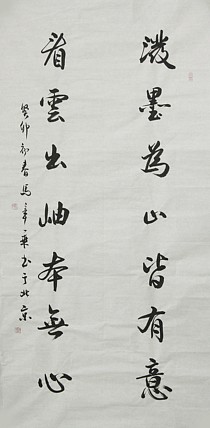 潑墨為山皆有意
看雲出岫本無心
癸卯初春馬章乘書於北京